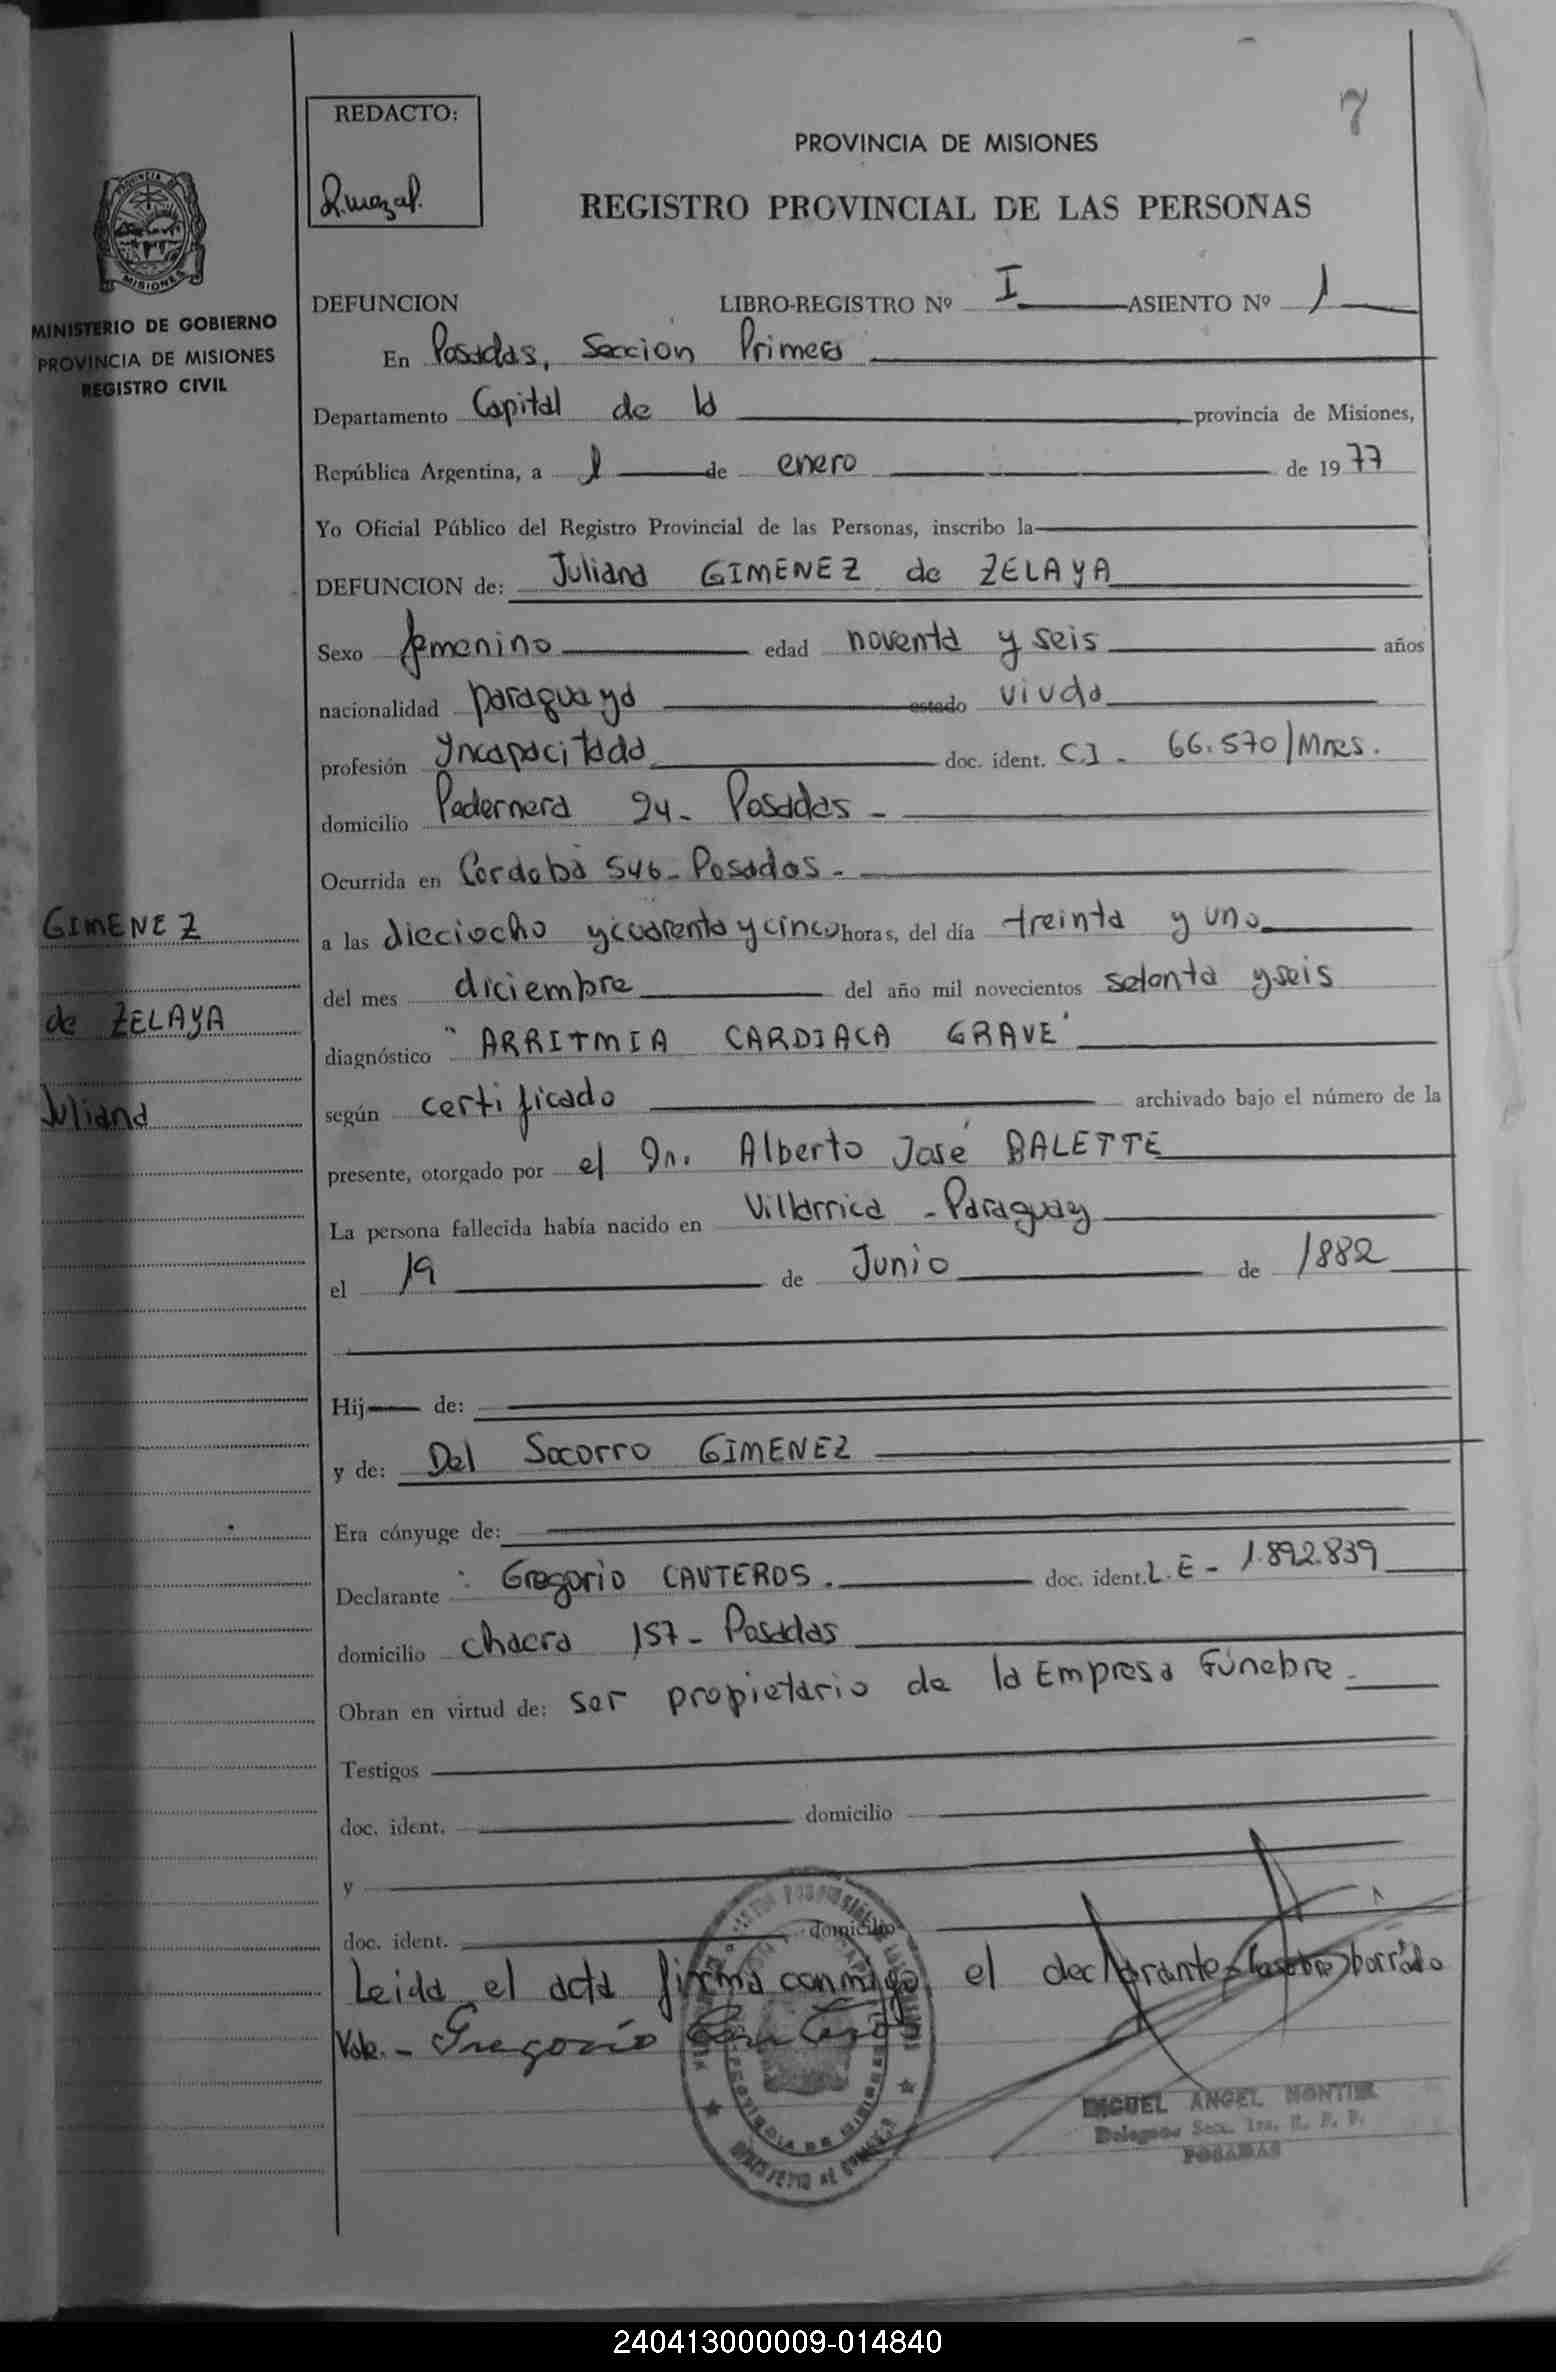 7
REDACTO:
PROVINCIA DE MISIONES
REGISTRO PROVINCIAL DE LAS PERSONAS
PROVINCIA DE MISIONES
MINISTERIO DE GOBIERNO
PROVINCIA DE MISIONES
REGISTRO CIVIL
DEFUNCION LIBRO-REGISTRO Nº I ASIENTO Nº 1
En Posadas, Sección Primera
Departamento Capital de la provincia de Misiones,
República Argentina, a 1 de enero de 1977
Yo Oficial Público del Registro Provincial de las Personas, inscribo la
DEFUNCION de: Juliana GIMENEZ de ZELAYA
Sexo femenino edad noventa y seis años
nacionalidad paraguaya estado viuda
profesión Yncapacitada doc. ident. C.I - 66.570/Mnes.
domicilio Pedernera 94- Posadas -
Ocurrida en Cordoba 546- Posadas -
a las dieciocho y cuarenta y cinco horas, del día treinta y uno
del mes diciembre del año mil novecientos setenta y seis
diagnóstico "ARRITMIA CARDIACA GRAVE"
según certificado archivado bajo el número de la
presente, otorgado por el Dr. Alberto José BALETTE
La persona fallecida había nacido en Villarrica - Paraguay
el 19 de Junio de 1882
Hij de:
y de: Del Socorro GIMENEZ
Era cónyuge de:
Declarante : Gregorio CAUTEROS. doc. ident. L.E - 1.892.839
domicilio chacra 157- Posadas
Obran en virtud de: ser propietario de la Empresa Fúnebre -
Testigos
doc. ident. domicilio
y
doc. ident. domicilio
Leida el acta firma conmigo el declarante borrado
Vale.- Gregorio
GIMENEZ
de ZELAYA
Juliana
PROVINCIA DE MISIONES
MINISTERIO DE GOBIERNO
MIGUEL ANGEL MONTIEL
Delegado Secc. 1ra. R. P. P.
POSADAS
240413000009-014840